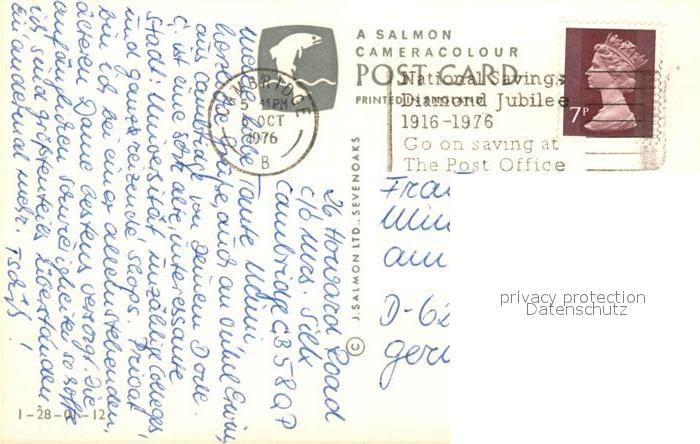 A SALMON
CAMERACOLOUR
POST CARD
PRINTED IN ENGLAND
CAMBRIDGE
5 45PM
OCT
1976
B
National Savings
Diamond Jubilee
1916-1976
Go on saving at
The Post Office
7P
© J. SALMON LTD., SEVENOAKS
26 Howard Road
c/o Mrs. Silk
Cambridge CB5 8QP
Tante
herzliche Grüße, auch an Onkel Erwin,
aus Cambridge von Deinem
C. ist eine sehr alte, interessante
Stadt: Universität, unzählige Colleges
und ganz reizende Shops. Privat
bin ich bei einer alleinstehenden,
älteren Dame bestens versorgt. Die
anfänglichen Schwierigkeiten
sind größtenteils überstanden.
mehr. Tschüß!
Frau
am
D-62
1-28-01-12
privacy protection
Datenschutz